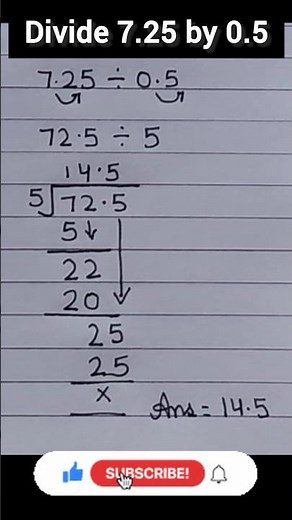 Divide 7.25 by 0.5
7.25 ÷ 0.5
72.5 ÷ 5
14.5
5 72.5
5
22
20
25
25
x
Ans = 14.5
SUBSCRIBE!